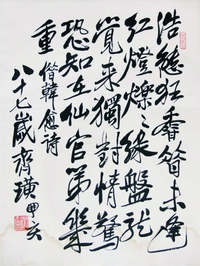 浩態狂香昔未逢
紅燈爍〻綠盤龍
覺來獨對情驚
恐在仙宮第幾
重 韓愈诗
八十七歲齊璜